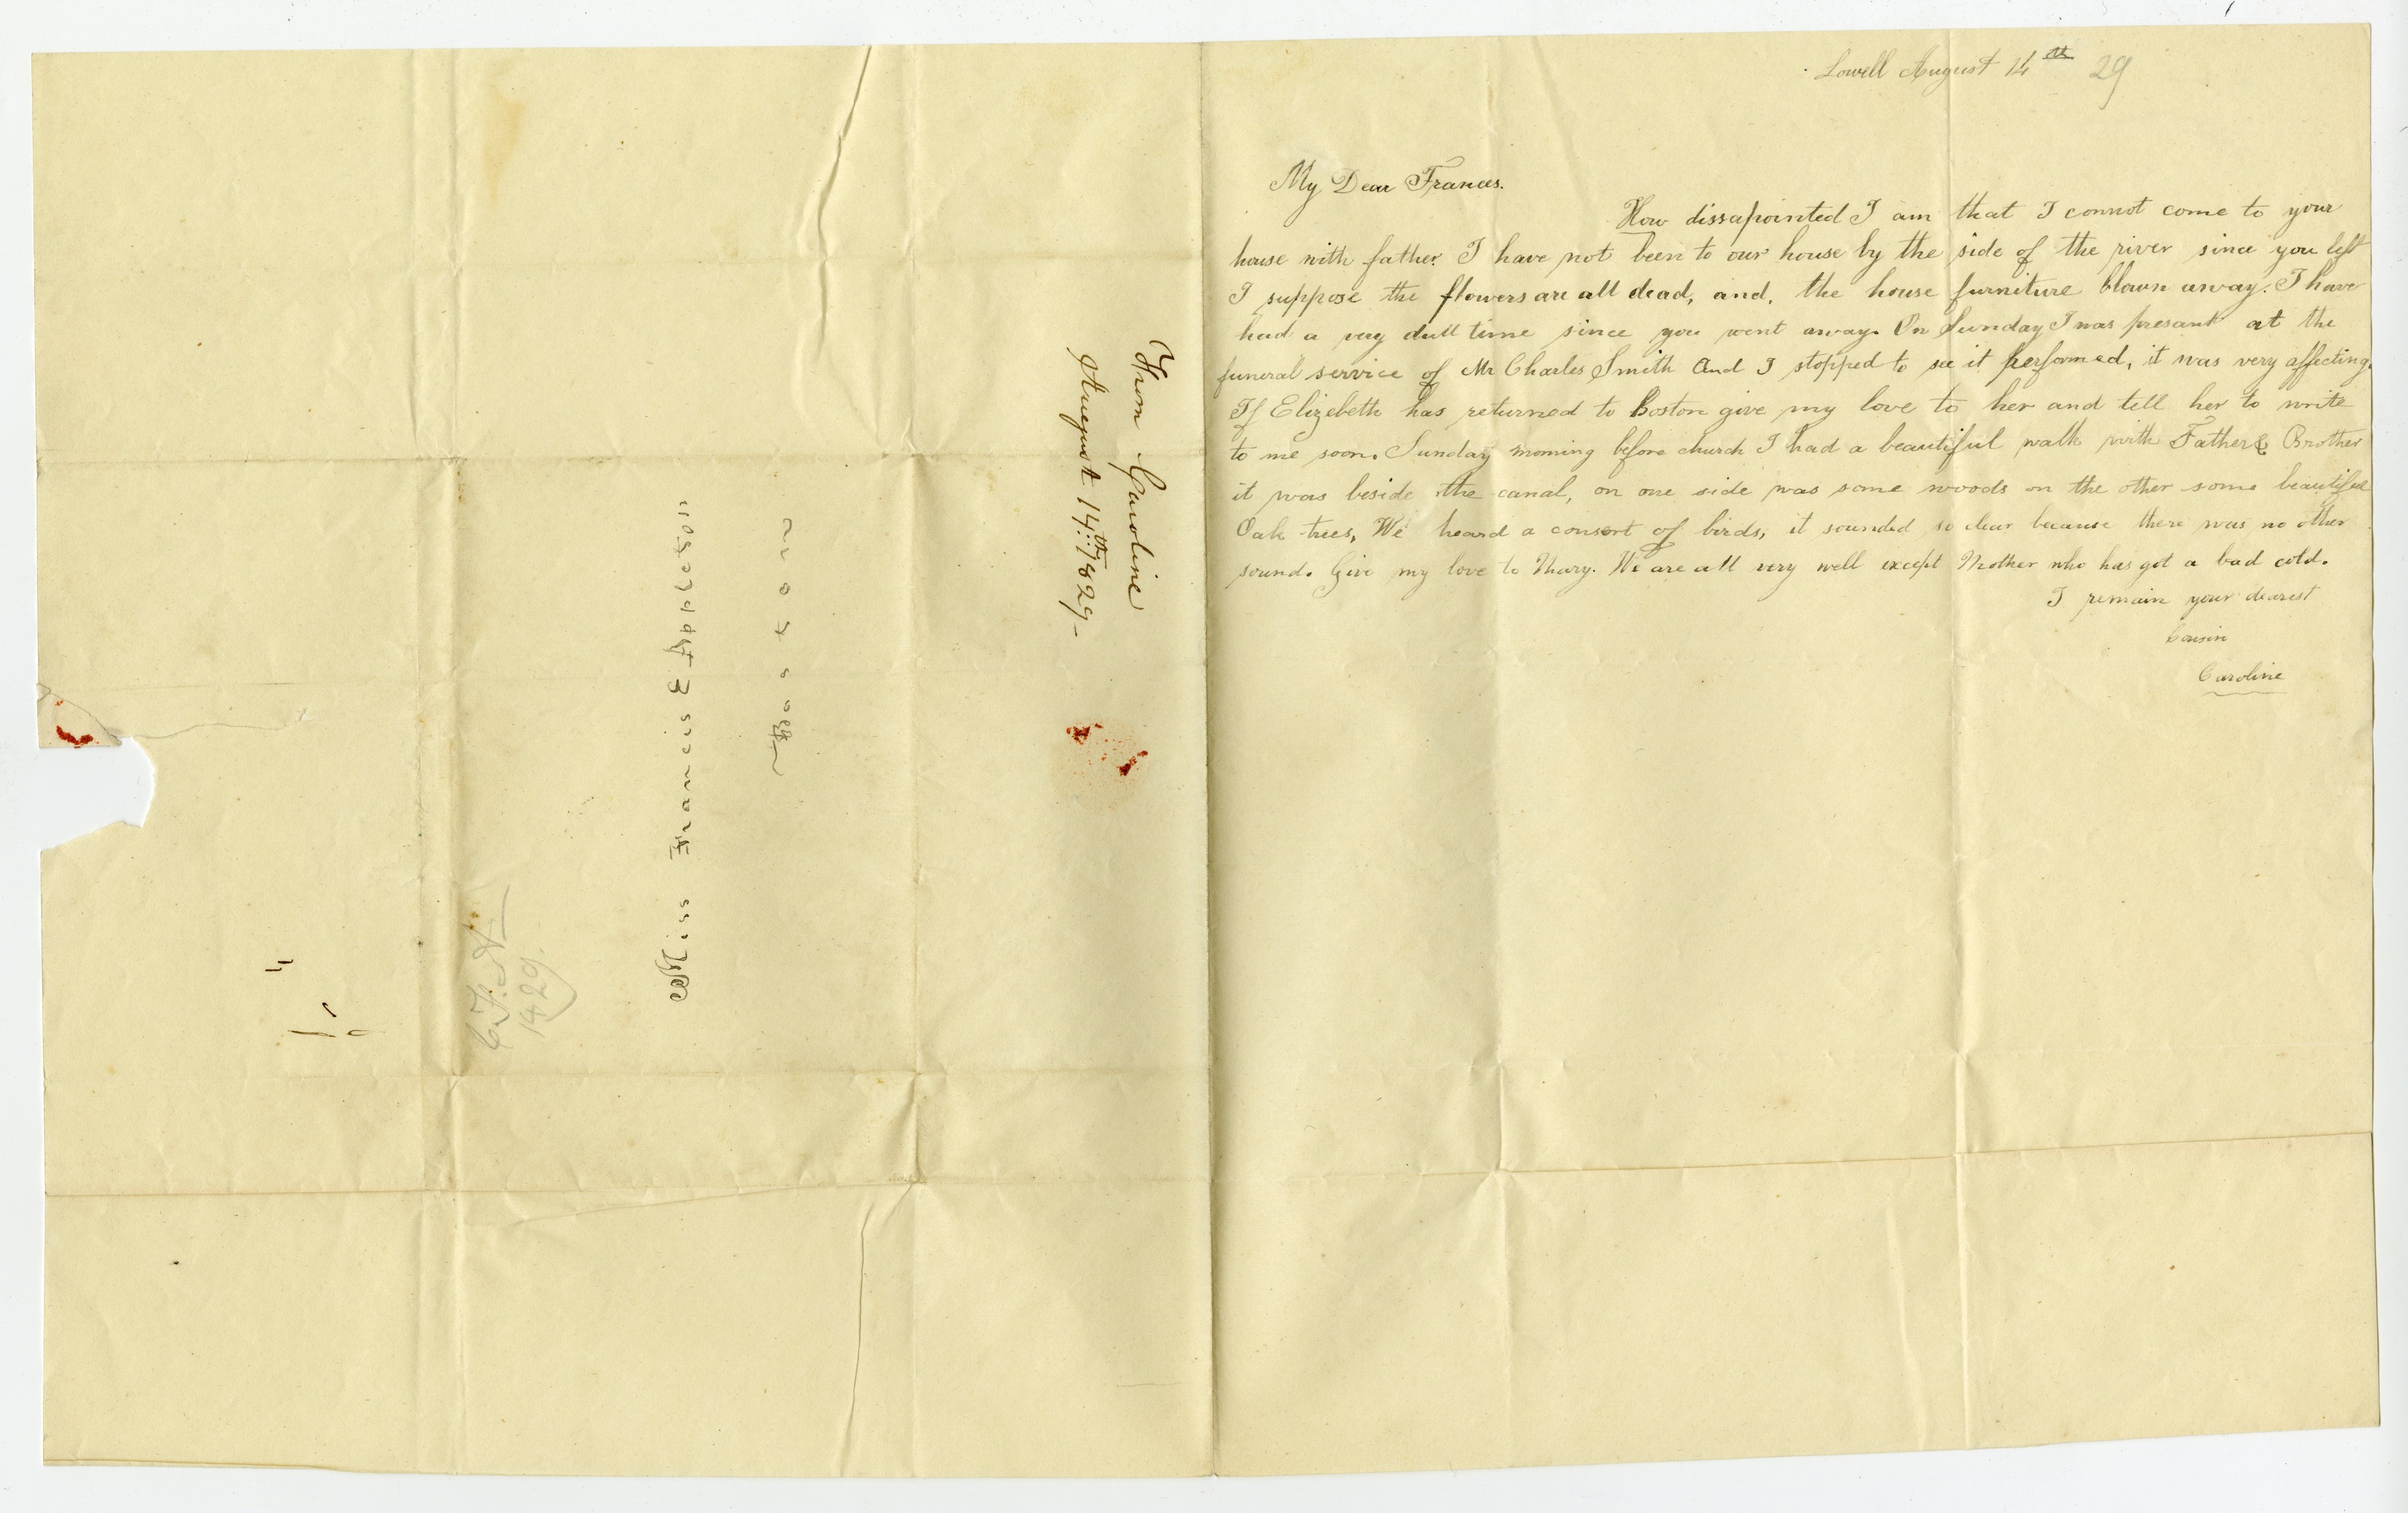 Lowell August 14th 29
My Dear Frances.
How dissapointed I am that I connot come to your
house with father. I have not been to our house by the side of the river since you left
I suppose the flowers are all dead, and, the house furniture blown away. I have
had a very dull time since you went away. On Sunday I was presant at the
funeral service of Mr Charles Smith And I stopped to see it performed, it was very affecting.
If Elizebeth has returned to Boston give my love to her and tell her to write
to me soon. Sunday morning before church I had a beautiful walk with Father & Brother
it was beside the canal, on one side was some woods on the other some beautiful
Oak trees, We heard a consert of birds, it sounded so clear because there was no other
sound. Give my love to Mary. We are all very well except Mother who has got a bad cold.
I remain your dearest
Cousin
Caroline
From Caroline
August 14th 1829-
Miss Frances E Appleton
Boston
1429